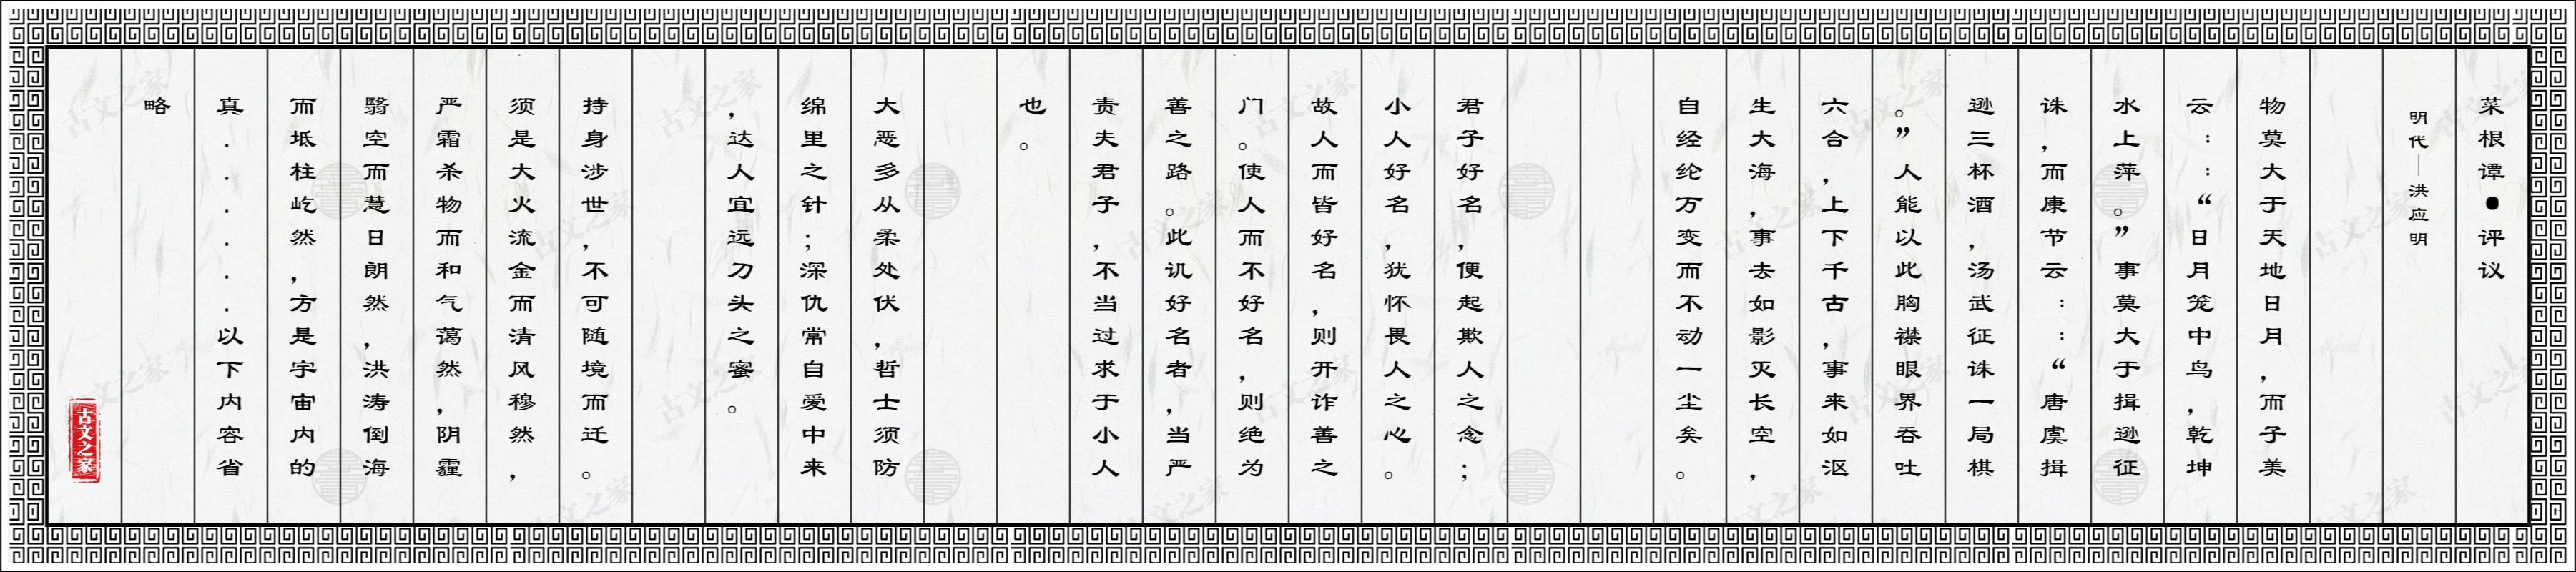 菜根谭●评议
明代—洪应明
物莫大于天地日月，而子美
云：：“日月笼中鸟，乾坤
水上萍。”事莫大于揖逊征
诛，而康节云：：：“唐虞揖
逊三杯酒，汤武征诛一局棋
。”人能以此胸襟眼界吞吐
六合，上下千古，事来如沤
生大海，事去如影灭长空，
自经纶万变而不动一尘矣。
君子好名，便起欺人之念；
小人好名，犹怀畏人之心。
故人而皆好名，则开诈善之
门。使人而不好名，则绝为
善之路。此讥好名者，当严
责夫君子，不当过求于小人
也。
大恶多从柔处伏，哲士须防
绵里之针；深仇常自爱中来
，达人宜远刀头之蜜。
持身涉世，不可随境而迁。
须是大火流金而清风穆然，
严霜杀物而和气蔼然，阴霾
翳空而慧日朗然，洪涛倒海
而坻柱屹然，方是宇宙内的
真......以下内容省
略
古文之家